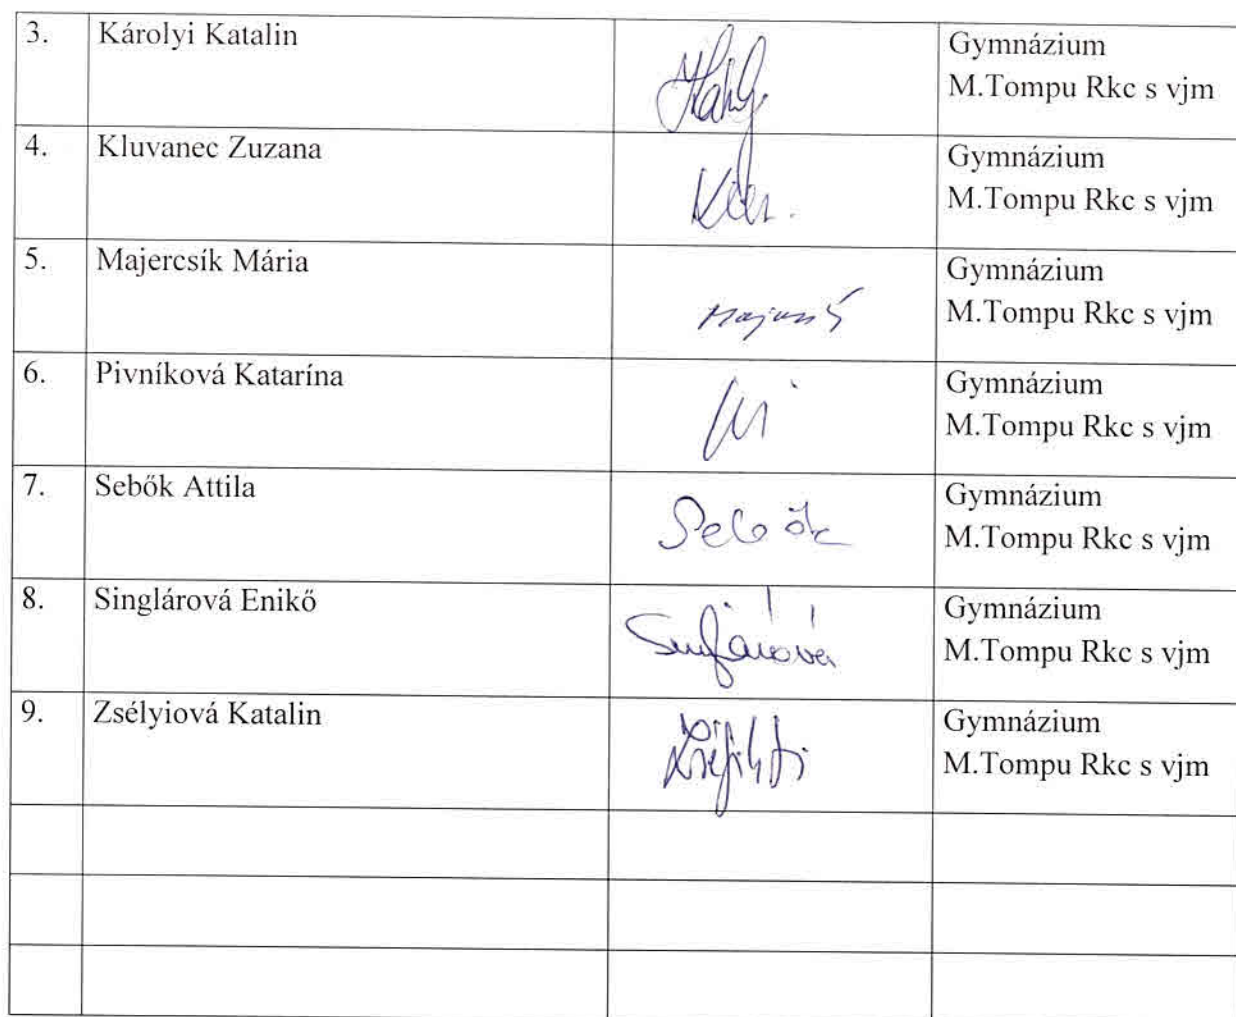 3. Károlyi Katalin Gymnázium
M.Tompu Rkc s vjm
4. Kluvanec Zuzana Gymnázium
M.Tompu Rkc s vjm
5. Majercsík Mária Gymnázium
M.Tompu Rkc s vjm
6. Pivníková Katarína Gymnázium
M.Tompu Rkc s vjm
7. Sebők Attila Sebők Gymnázium
M.Tompu Rkc s vjm
8. Singlárová Enikő Gymnázium
M.Tompu Rkc s vjm
9. Zsélyiová Katalin Gymnázium
M.Tompu Rkc s vjm